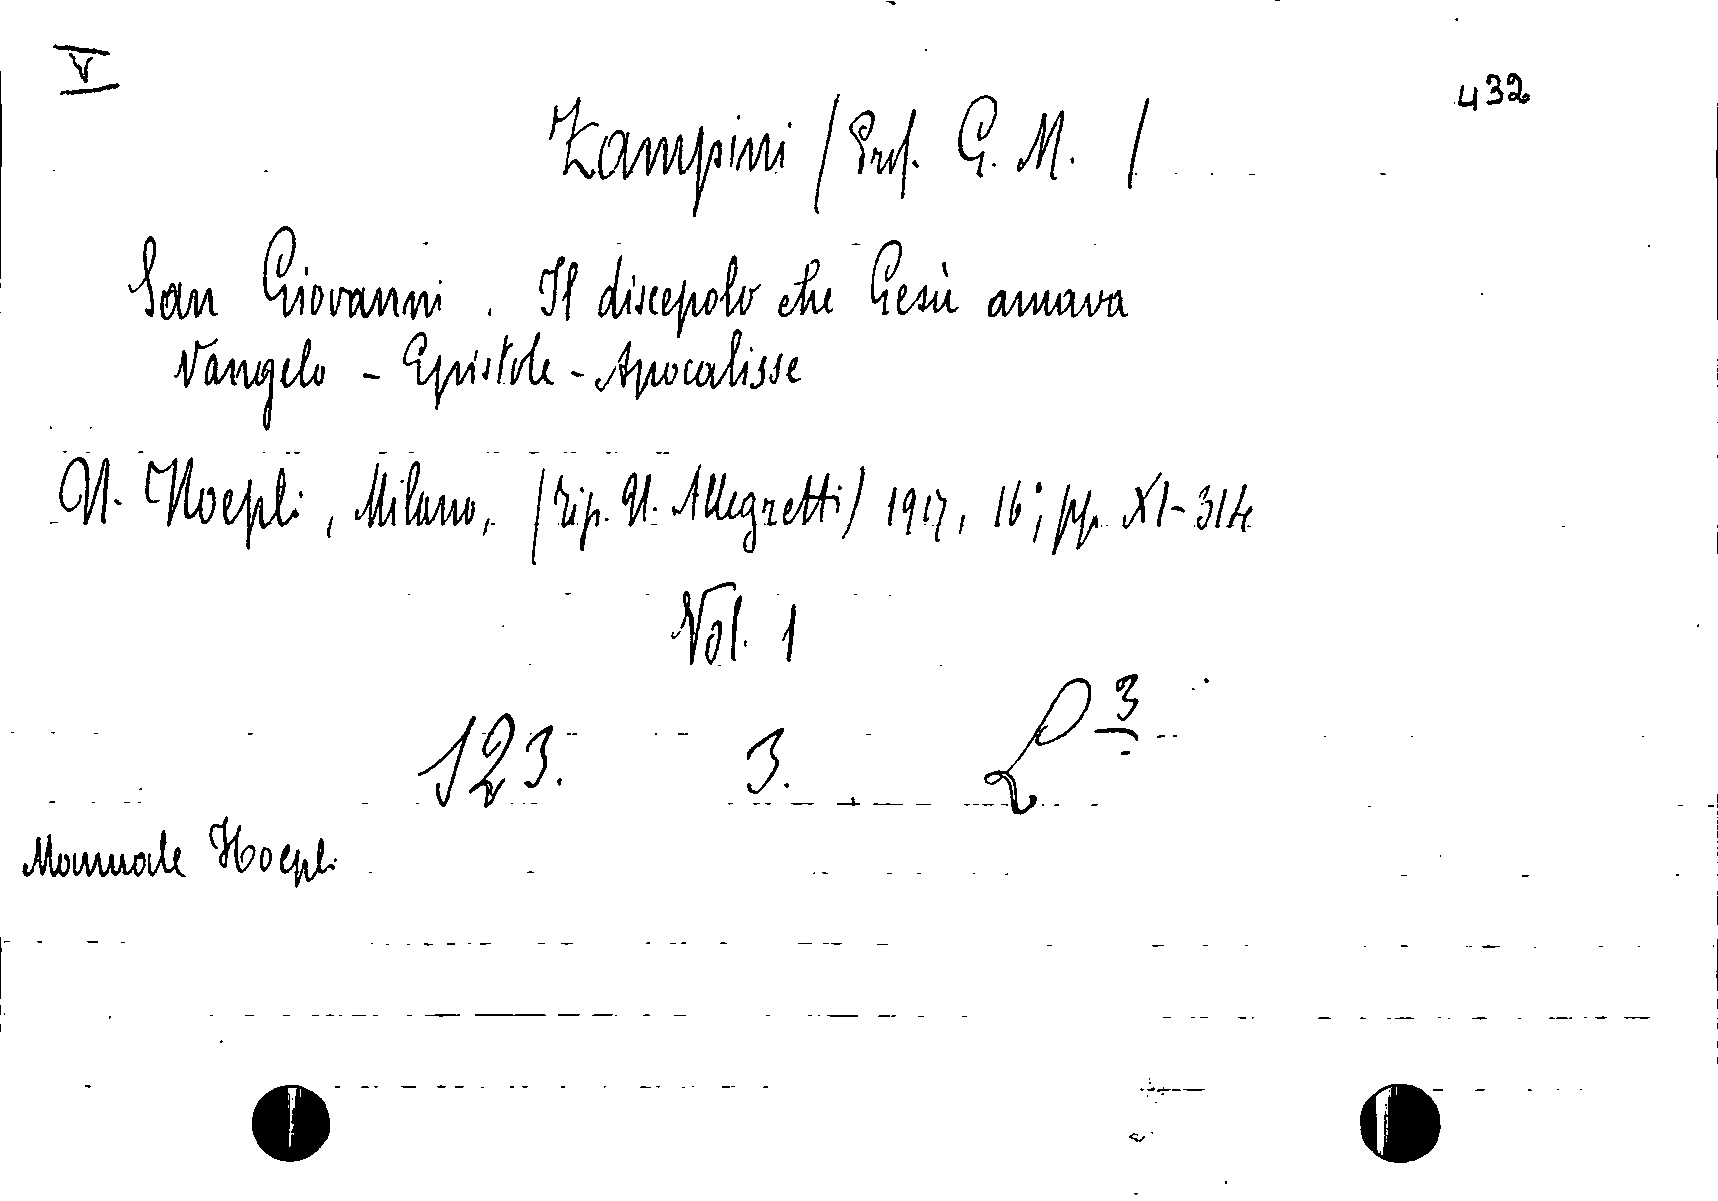 V
432
Zampini / Prof. G. M. /
San Giovanni. Il discepolo che Gesù amava
Vangelo - Epistole - Apocalisse
U. Hoepli, Milano, (tip. U. Allegretti) 1917, 16°, pp. XI-314
Vol. 1
123. 3. 3
Manuale Hoepli